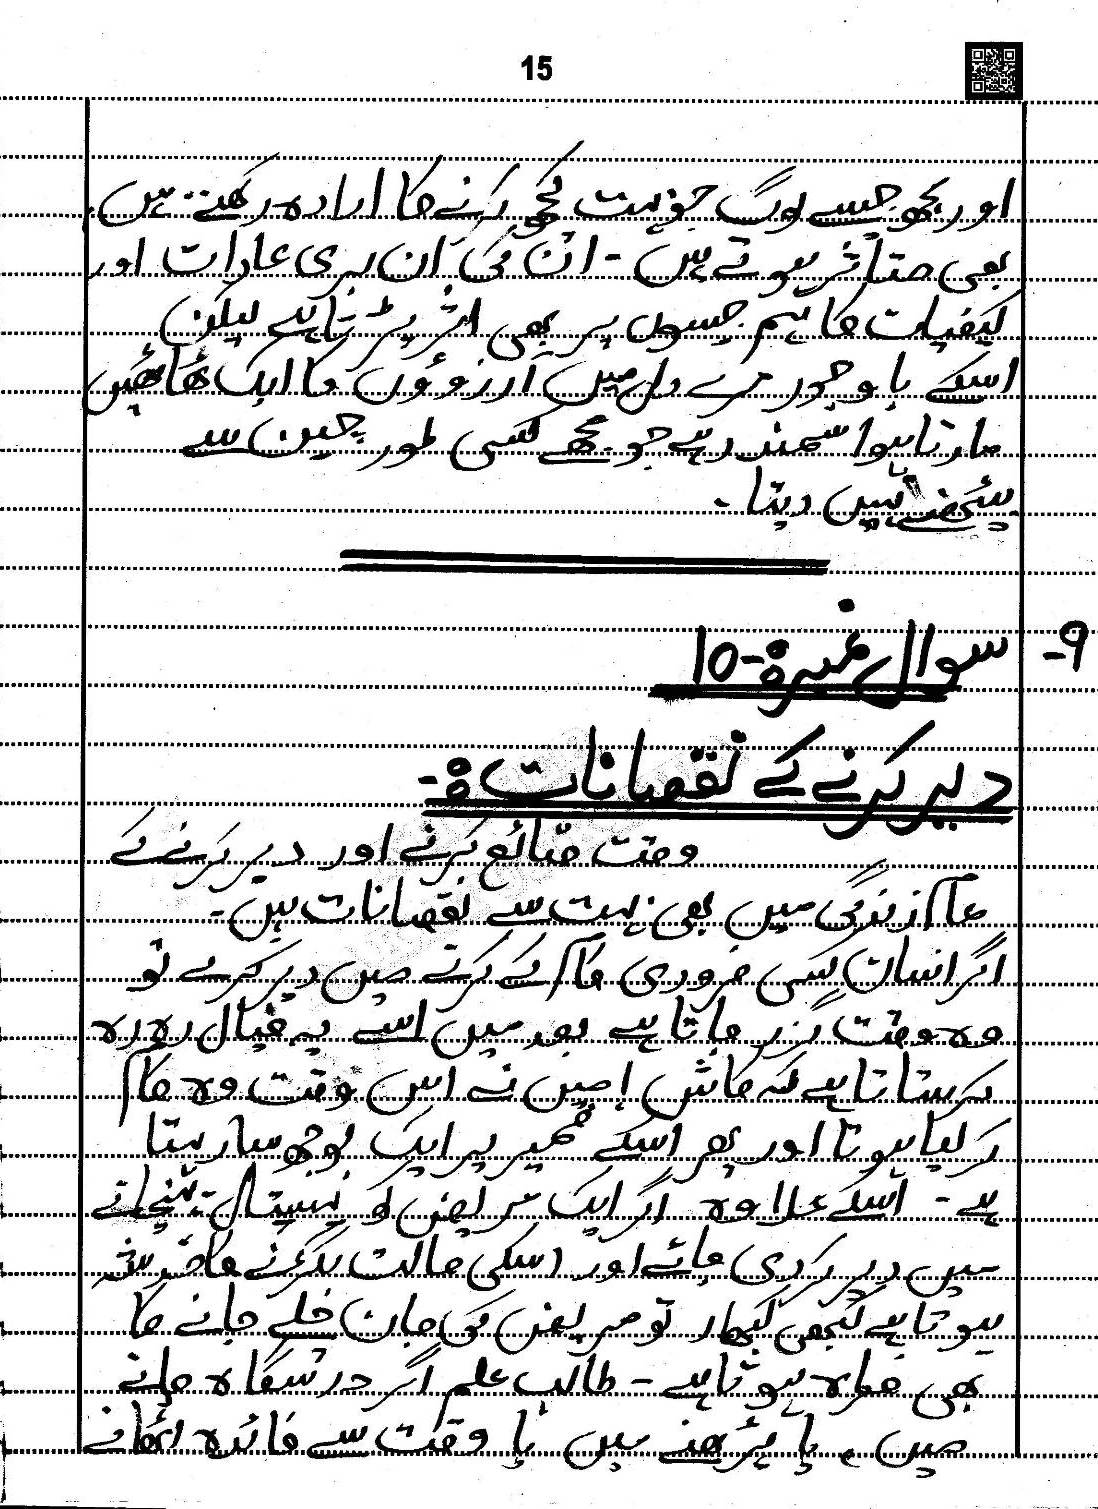 15
اور مجھ جیسے لوگ جو بہت کچھ کرنے کا ارادہ رکھتے ہیں
بھی متاثر ہوتے ہیں ۔ ان کی ان بری عادات اور
کیفیات کا ہم جیسوں پر بھی اثر پڑتا ہے لیکن
اسکے باوجود مرے دل میں آرزوؤں کا ایک ٹھاٹھیں
مارتا ہوا سمندر ہے جو مجھے کسی طور چین سے
بیٹھنے نہیں دیتا ۔
۹- سوال نمبرہ:۔ ۱۵
دیر کرنے کے نقصانات ہ:۔
وقت ضائع کرنے اور دیر کرنے کے
عام زندگی میں بھی بہت سے نقصانات ہیں ۔
اگر انسان کسی ضروری کام کے کرنے میں دیر کرے تو
وہ وقت گزر جاتا ہے بعد میں اسے یہ خیال رہ رہ
کر ستاتا ہے کہ کاش ! میں نے اس وقت وہ کام
کر لیا ہوتا اور پھر اسکے ضمیر پر ایک بوجھ سا رہتا
ہے ۔ اسکے علاوہ اگر ایک مریض کو ہسپتال پہنچانے
میں دیر کر دی جائے اور اسکی حالت بگڑنے کا خدشہ
ہوتا ہے کبھی کبھار تو مریض کی جان چلے جانے کا
بھی خطرہ ہوتا ہے ۔ طالب علم اگر درسگاہ جانے
میں ، یا پڑھنے میں یا وقت سے فائدہ اٹھانے